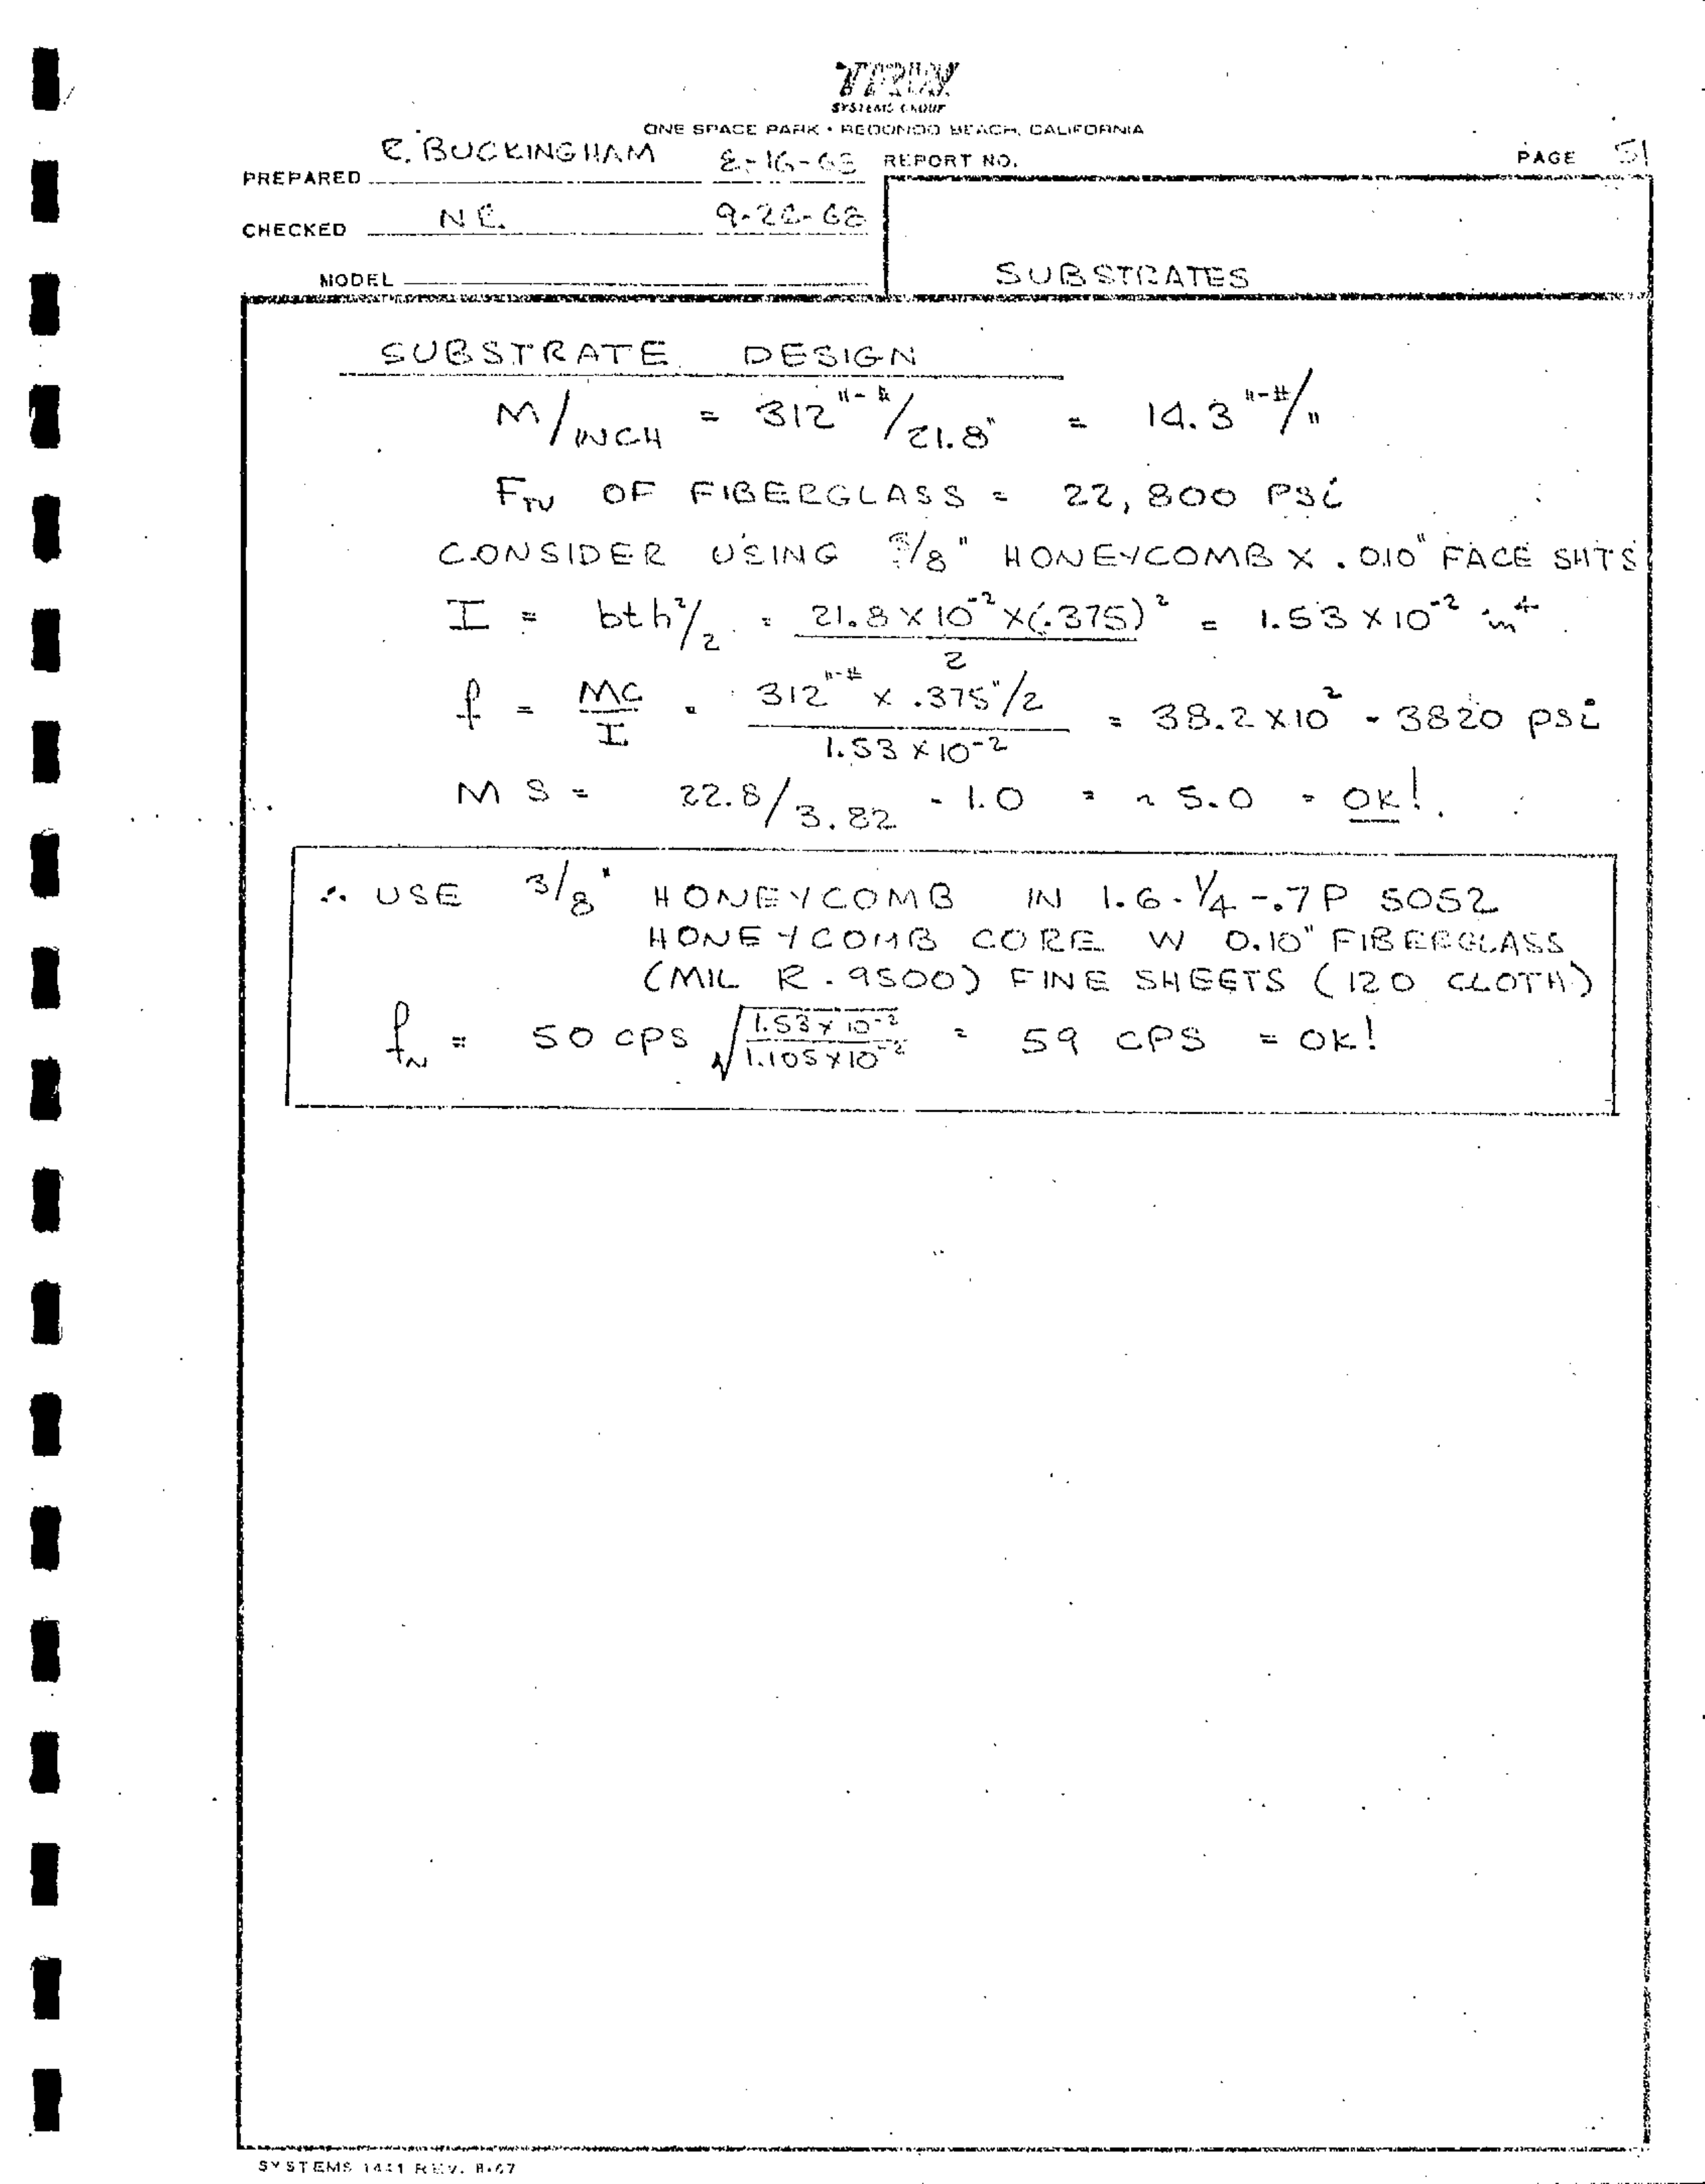 TRW
SYSTEMS GROUP
ONE SPACE PARK • REDONDO BEACH, CALIFORNIA
PREPARED R. BUCKINGHAM 8-16-68 REPORT NO. PAGE 51
CHECKED N.C. 9-26-68
MODEL
SUBSTRATES
SUBSTRATE DESIGN
M/INCH = 312"-#/21.8" = 14.3"-#/"
FTU OF FIBERGLASS = 22,800 PSi
CONSIDER USING 3/8" HONEYCOMB X .010" FACE SHTS
I = bth²/2 = 21.8 X 10⁻² X (.375)²/2 = 1.53 X 10⁻² in⁴
f = MC/I = 312"-# X .375"/2 / 1.53 X 10⁻² = 38.2 X 10² - 3820 psi
M S = 22.8/3.82 - 1.0 = ~ 5.0 = OK!
∴ USE 3/8" HONEYCOMB IN 1.6-1/4-.7P 5052
HONEYCOMB CORE W 0.10" FIBERGLASS
(MIL R-9500) FINE SHEETS (120 CLOTH)
fN = 50 CPS √1.53 X 10⁻²/1.105 X 10⁻² = 59 CPS = OK!
SYSTEMS 1441 REV. 8-67